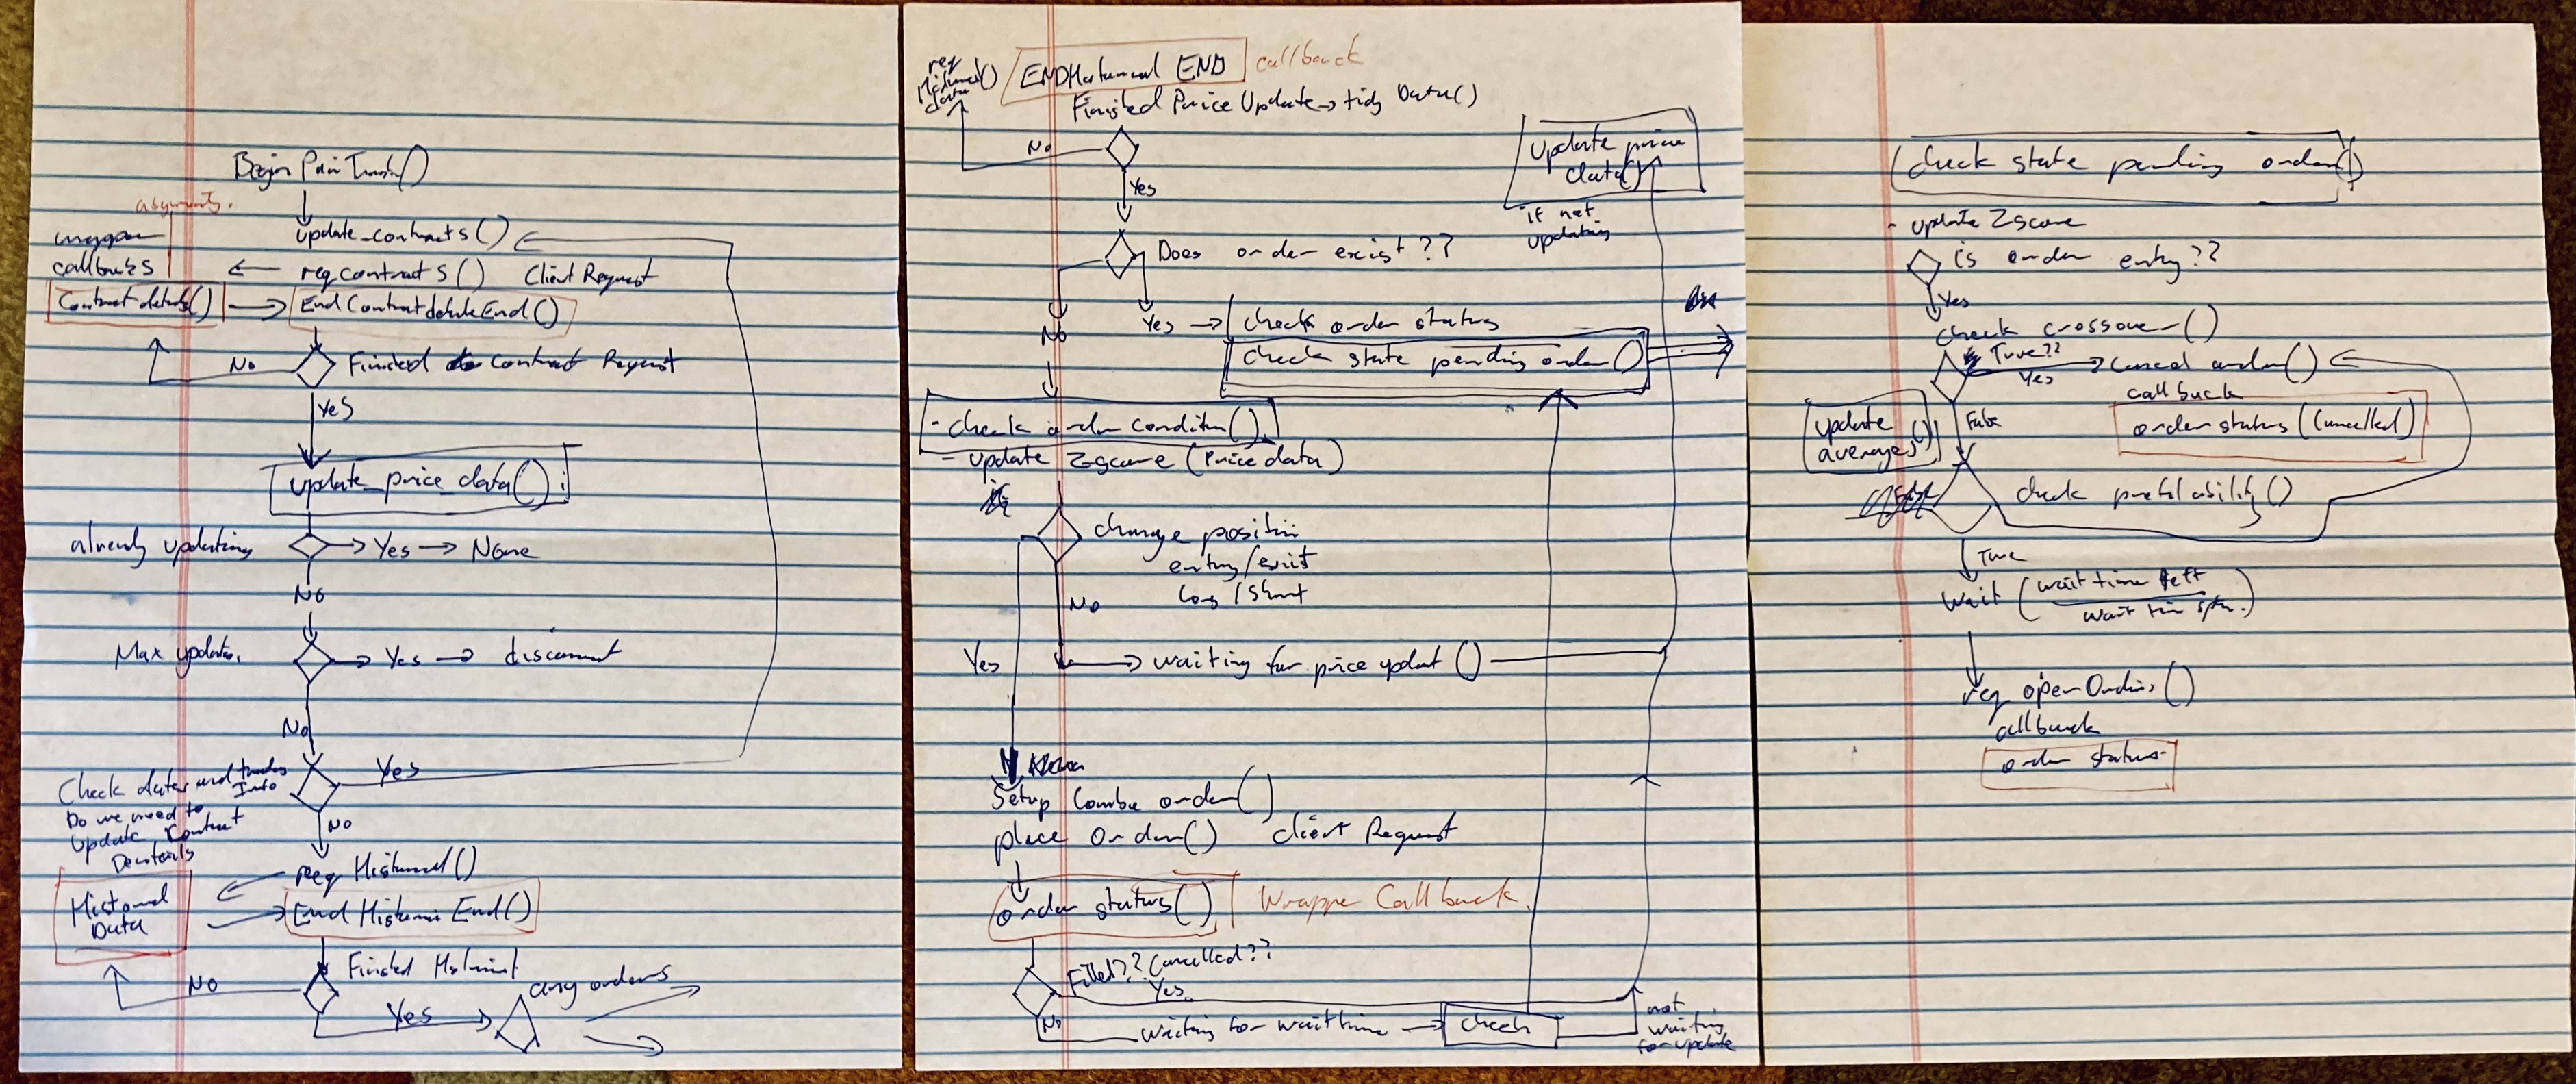 Begin Pair Trade()
update_contracts()
wrapper
callbacks
req contracts() Client Request
Contract details()
End Contract details End()
No
Finished Contract Request
Yes
update_price_data()
already updating
Yes
None
No
Max updates.
Yes
disconnect
No
Check dates and
Info
Yes
Do we need to
update Contract
Details
No
req Historical()
Historical
Data
End Historic End()
Finished Historical
No
Yes
any orders
req
Historical()
data
END Historical END
callback
Finished Price Update → tidy Data()
No
Yes
update price
data()
if not
updating
Does order exist??
No
Yes
check order status
check state pending order()
- check order condition()
- update Zscore (Price data)
change position
entry/exit
Long/Short
No
Yes
waiting for price updat()
Setup Combo order()
place Order() client Request
order status()
Wrapper Callback
Filled?? Cancelled??
Yes
No
waiting for wait time
check
not
waiting
for update
check state pending order()
- update Zscore
is order entry??
Yes
check crossover()
True??
Yes
cancel order()
callback
order status (Cancelled)
update
averages()
False
check profitability()
True
Wait (wait time left
req openOrders()
callback
order status